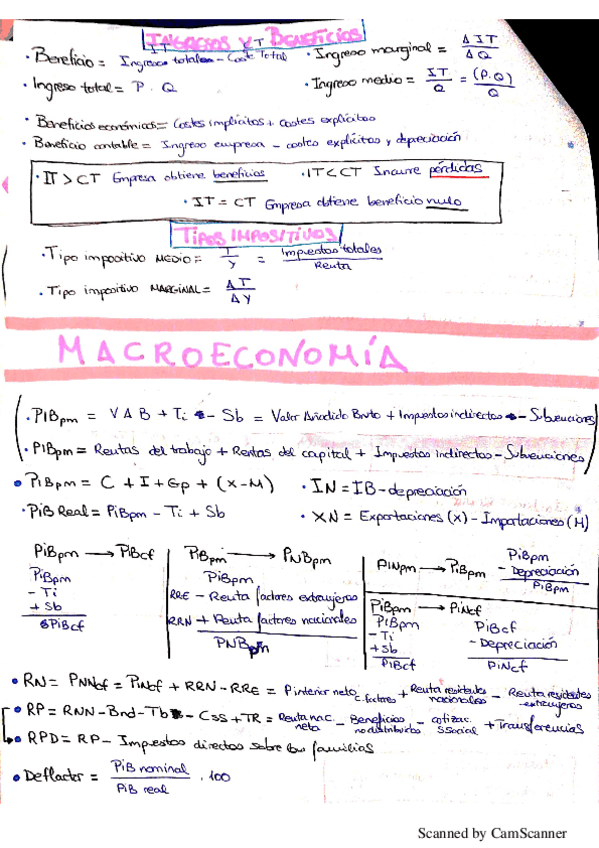 INGRESOS Y BENEFICIOS
· Beneficio = IT Ingresos totales - CT Coste Total · Ingreso marginal = ΔIT / ΔQ
· Ingreso total = P · Q · Ingreso medio = IT / Q = (P·Q) / Q
· Beneficios económicos = Costes implícitos + costes explícitos
· Beneficio contable = Ingreso empresa - costes explícitos y depreciación
· IT > CT Empresa obtiene beneficios · IT < CT Incurre pérdidas
· IT = CT Empresa obtiene beneficio nulo
TIPOS IMPOSITIVOS
· Tipo impositivo MEDIO = T / Y = Impuestos totales / Renta
· Tipo impositivo MARGINAL = ΔT / ΔY
MACROECONOMÍA
· PIBpm = VAB + Ti - Sb = Valor Añadido Bruto + Impuestos indirectos - Subvenciones
· PIBpm = Rentas del trabajo + Rentas del capital + Impuestos indirectos - Subvenciones
· PiBpm = C + I + Gp + (X-M) · IN = IB - depreciación
· PiB Real = PiBpm - Ti + Sb · XN = Exportaciones (X) - Importaciones (M)
PiBpm → PiBcf
PiBpm
- Ti
+ Sb
PiBcf
PiBpm → PNBpm
PiBpm
RRE - Renta factores extranjeros
RRN + Renta factores nacionales
PNBpm
PINpm → PIBpm
PIBpm
- Depreciación
PIBpm
PIBpm → PiNcf
PIBpm
- Ti
+ Sb
PiBcf
PiBcf
- Depreciación
PiNcf
· RN = PNNcf = PiNcf + RRN - RRE = P interior neto c.factores + Renta residentes nacionales - Renta residentes extranjeros
· RP = RNN - Bnd - Tb - Css + TR = Renta nac. neta - Beneficios no distribuidos - cotizac. s.social + Transferencias
· RPD = RP - Impuestos directos sobre las familias
· Deflactor = PiB nominal / PiB real · 100
Scanned by CamScanner